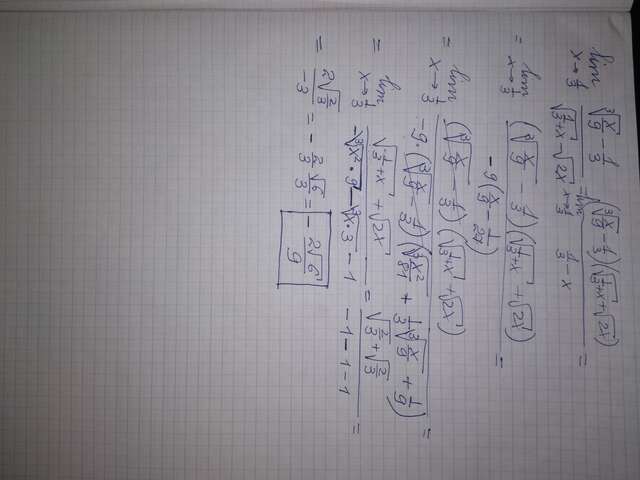 lim x→1/3 (∛(x/9) - 1/3)/(√(1/3+x) - √2x) = lim x→1/3 (∛(x/9) - 1/3)(√(1/3+x) + √2x)/(1/3 - x) =
= lim x→1/3 (∛(x/9) - 1/3)(√(1/3+x) + √2x)/(-9(x/9 - 1/27)) =
= lim x→1/3 (∛(x/9) - 1/3)(√(1/3+x) + √2x)/(-9·(∛(x/9) - 1/3)(∛(x²/81) + 1/3 ∛(x/9) + 1/9)) =
= lim x→1/3 (√(1/3+x) + √2x)/(-∛(x²·9) - ∛(x·3) - 1) = (√(2/3) + √(2/3))/(-1-1-1) =
= 2√(2/3)/-3 = - (2/3)(√6/3) = - 2√6/9